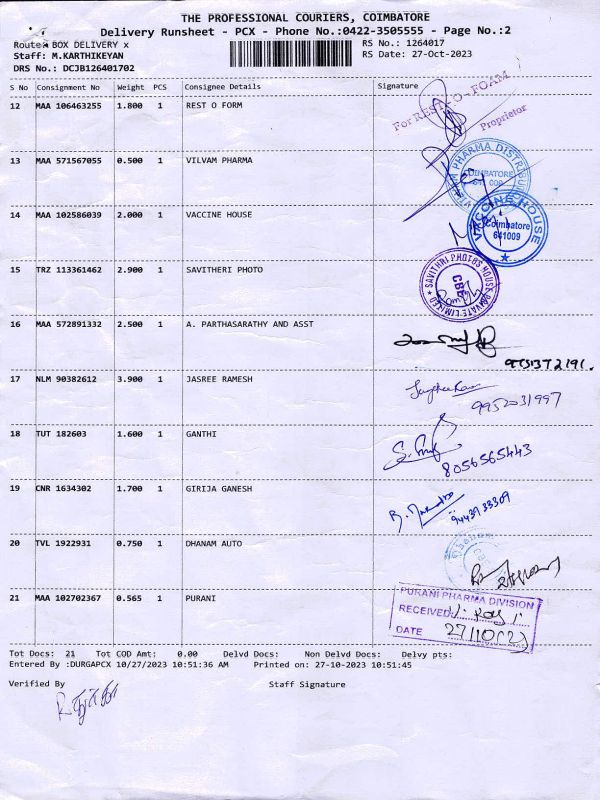 THE PROFESSIONAL COURIERS, COIMBATORE
Delivery Runsheet - PCX - Phone No.:0422-3505555 - Page No.:2
Route: BOX DELIVERY x
RS No.: 1264017
Staff: M.KARTHIKEYAN
RS Date: 27-Oct-2023
DRS No.: DCJB126401702
S No Consignment No Weight PCS Consignee Details Signature
12 MAA 106463255 1.800 1 REST O FORM
For REST - O - FOAM
Proprietor
13 MAA 571567055 0.500 1 VILVAM PHARMA
VILVAM PHARMA DISTRIBU
COIMBATORE
14 MAA 102586039 2.000 1 VACCINE HOUSE
VACCINE HOUSE
Coimbatore
641009
15 TRZ 113361462 2.900 1 SAVITHERI PHOTO
SAVITHRI PHOTOS HOUSE PRIVATE LIMITED
CBE
16 MAA 572891332 2.500 1 A. PARTHASARATHY AND ASST
17 NLM 90382612 3.900 1 JASREE RAMESH
9952031997
18 TUT 182603 1.600 1 GANTHI
8056565443
19 CNR 1634302 1.700 1 GIRIJA GANESH
9443933309
20 TVL 1922931 0.750 1 DHANAM AUTO
21 MAA 102702367 0.565 1 PURANI
PURANI PHARMA DIVISION
RECEIVED
DATE 27/10/23
Tot Docs: 21 Tot COD Amt: 0.00 Delvd Docs: Non Delvd Docs: Delvy pts:
Entered By :DURGAPCX 10/27/2023 10:51:36 AM Printed on: 27-10-2023 10:51:45
Verified By Staff Signature